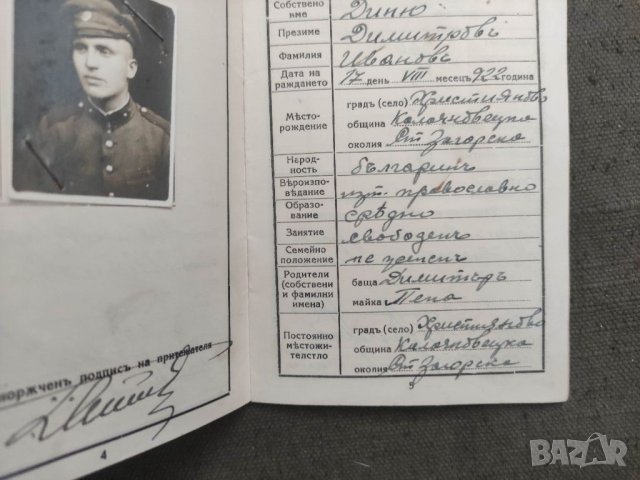 норжченъ подпись на притежателя
4
Собствено име Диню
Презиме Димитровъ
Фамилия Ивановъ
Дата на раждането 17 день VIII месецъ 922 година
Място-рождение градъ (село) Християново
община Калояновецка
околия Ст. Загорска
Народ-ность българинъ
Вѣроизпо-вѣдание изт. православно
Образо-вание срѣдно
Занятие свободенъ
Семейно положение не жененъ
Родители (собствени и фамилни имена) баща Димитъръ
майка Пена
Постоянно мѣстожи-телстло градъ (село) Християново
община Калояновецка
околия Ст. Загорска
5
BAZAR
bg